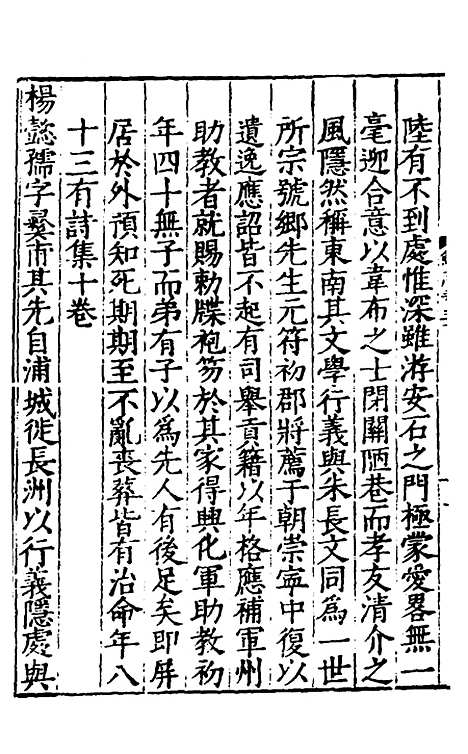 陸有不到處惟深雖游安石之門極蒙愛畧無一
毫迎合意以韋布之士閉關陋巷而孝友清介之
風隱然稱東南其文學行義與朱長文同為一世
所宗號鄉先生元符初郡將薦于朝崇寧中復以
遺逸應詔皆不起有司舉貢籍以年格應補軍州
助教者就賜勅牒袍笏於其家得興化軍助教初
年四十無子而弟有子以為先人有後足矣即屏
居於外預知死期期至不亂喪葬皆有治命年八
十三有詩集十卷
楊懿孺字彝甫其先自浦城徙長洲以行義隱處與